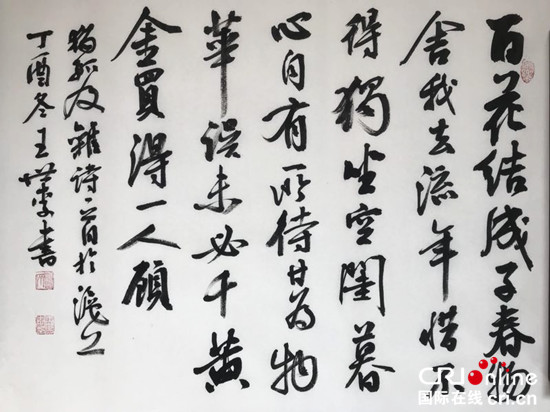 百花结成子春物
舍我去流年惜不
得獨坐空閨暮
心自有所待甘為物
華误未必千黄
金買得一人顧
獨孤及雜诗一首於滬上
丁酉冬王世书
CRI Online
国际在线 cri.cn